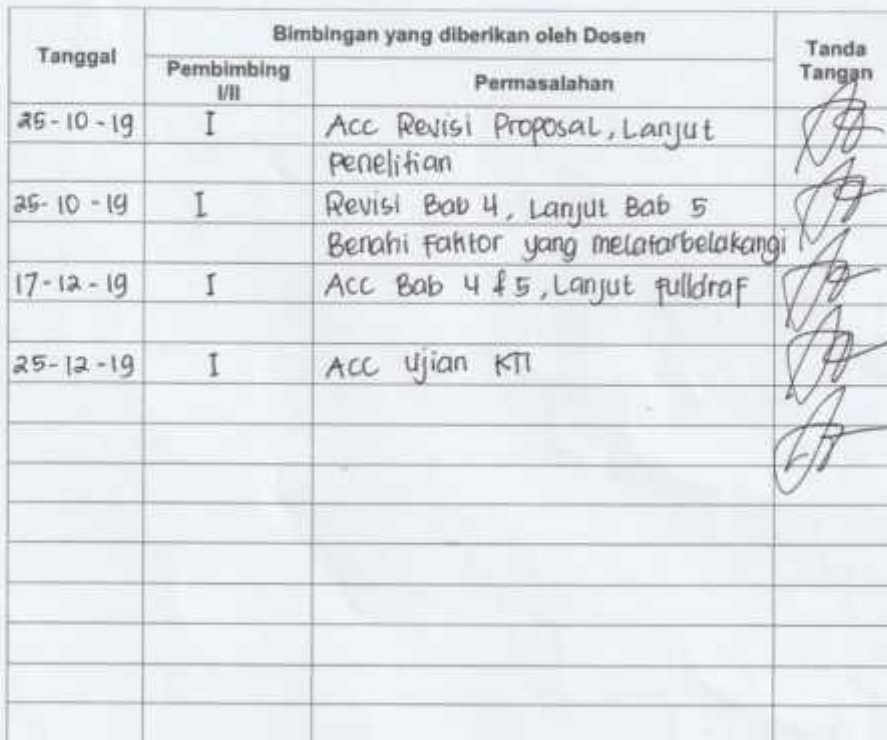 Tanggal
Bimbingan yang diberikan oleh Dosen
Tanda
Tangan
Pembimbing
I/II
Permasalahan
25-10-19 I Acc Revisi Proposal, Lanjut
penelitian
25-10-19 I Revisi Bab 4, Lanjut Bab 5
Benahi Fahtor yang melatarbelakangi
17-12-19 I Acc Bab 4 & 5, Lanjut fulldraf
25-12-19 I Acc Ujian KTI